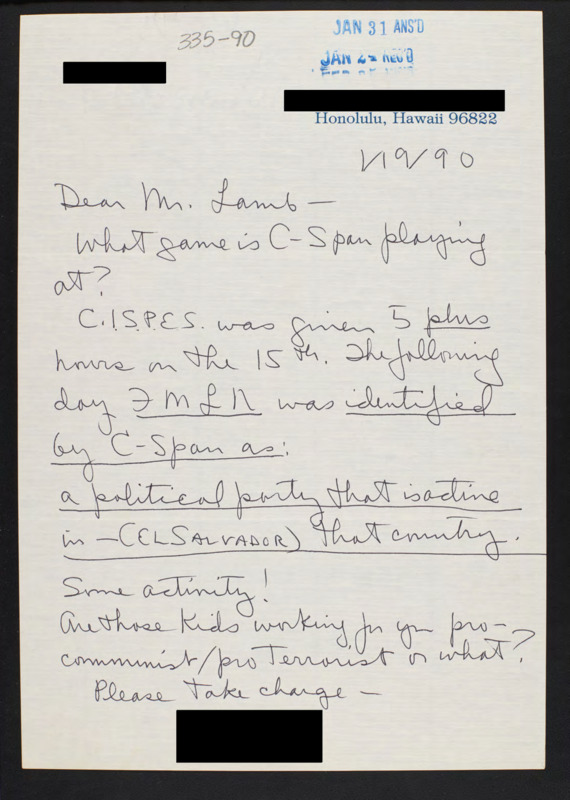 335-90
JAN 31 ANS'D
JAN 24 REC'D
Honolulu, Hawaii 96822
1/19/90
Dear Mr. Lamb—
What game is C-Span playing
at?
C.I.S.P.E.S. was given 5 plus
hours on the 15th. The following
day FMLN was identified
by C-Span as:
a political party that is active
in —(EL SALVADOR) that country.
Some activity!
Are those kids working for you pro-
communist/pro Terrorist or what?
Please take charge —